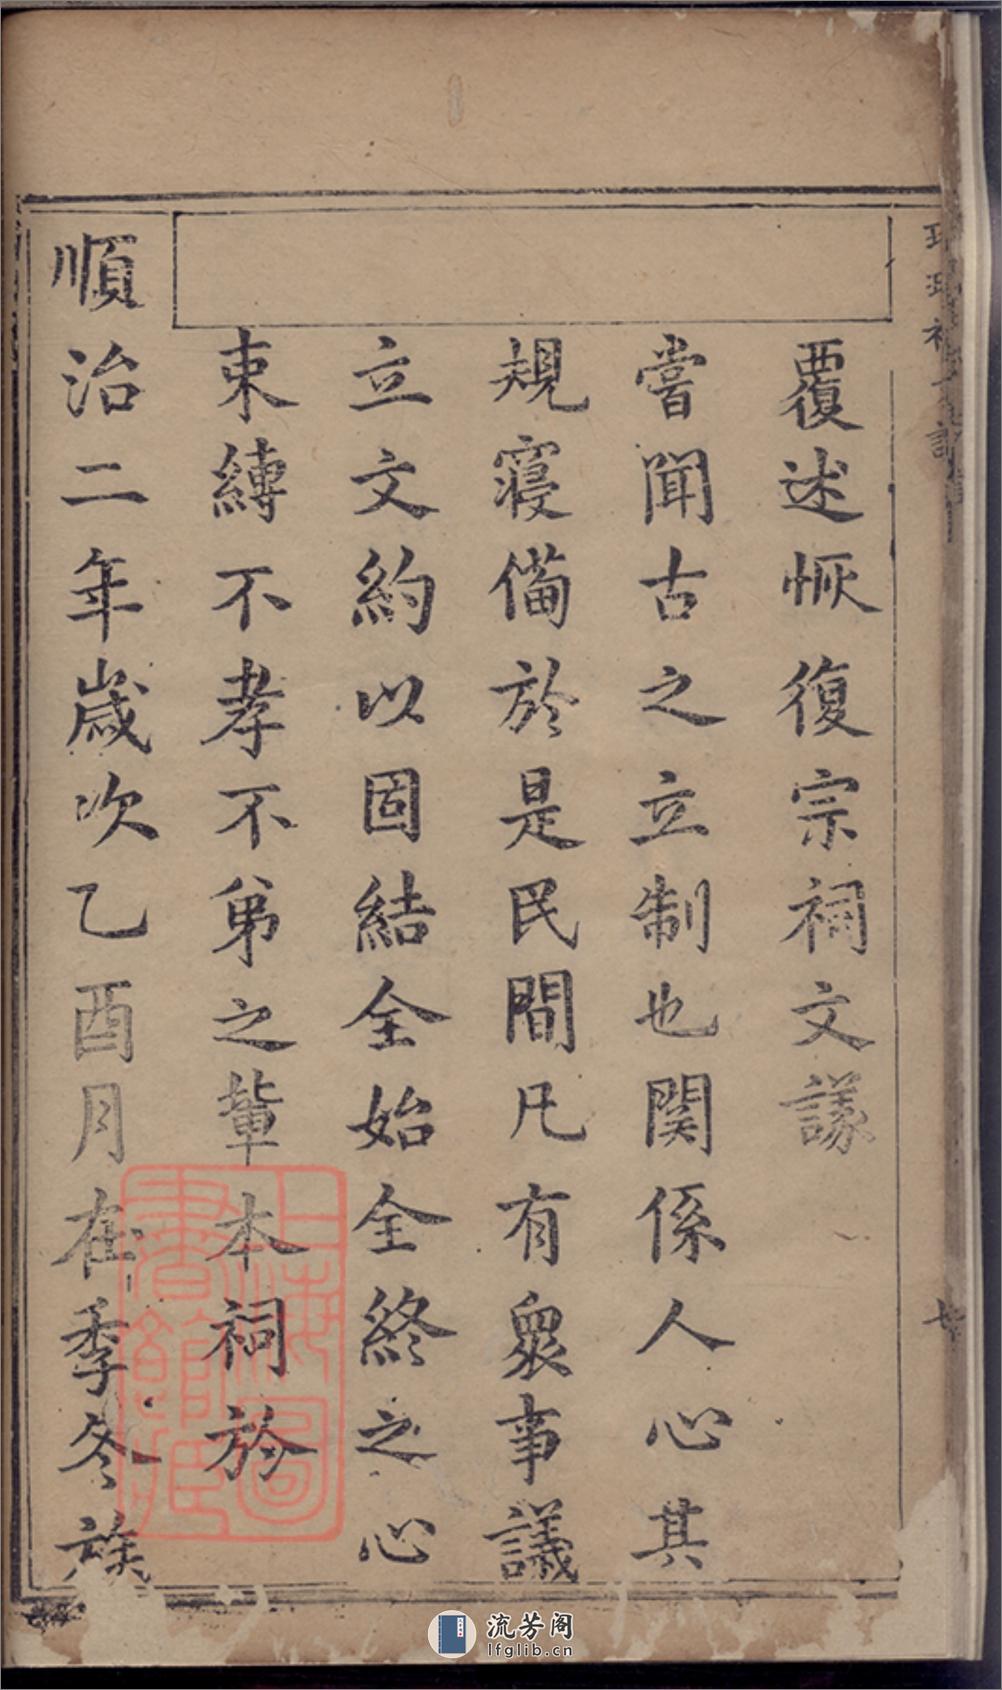 覆述恢復宗祠文議
嘗聞古之立制也関係人心其
規寝備於是民間凡有衆事議
立文約以固結全始全終之心
束縛不孝不弟之輩本祠於
順治二年歲次乙酉月在季冬族
上海圖書館藏
流芳阁
lfglib.cn